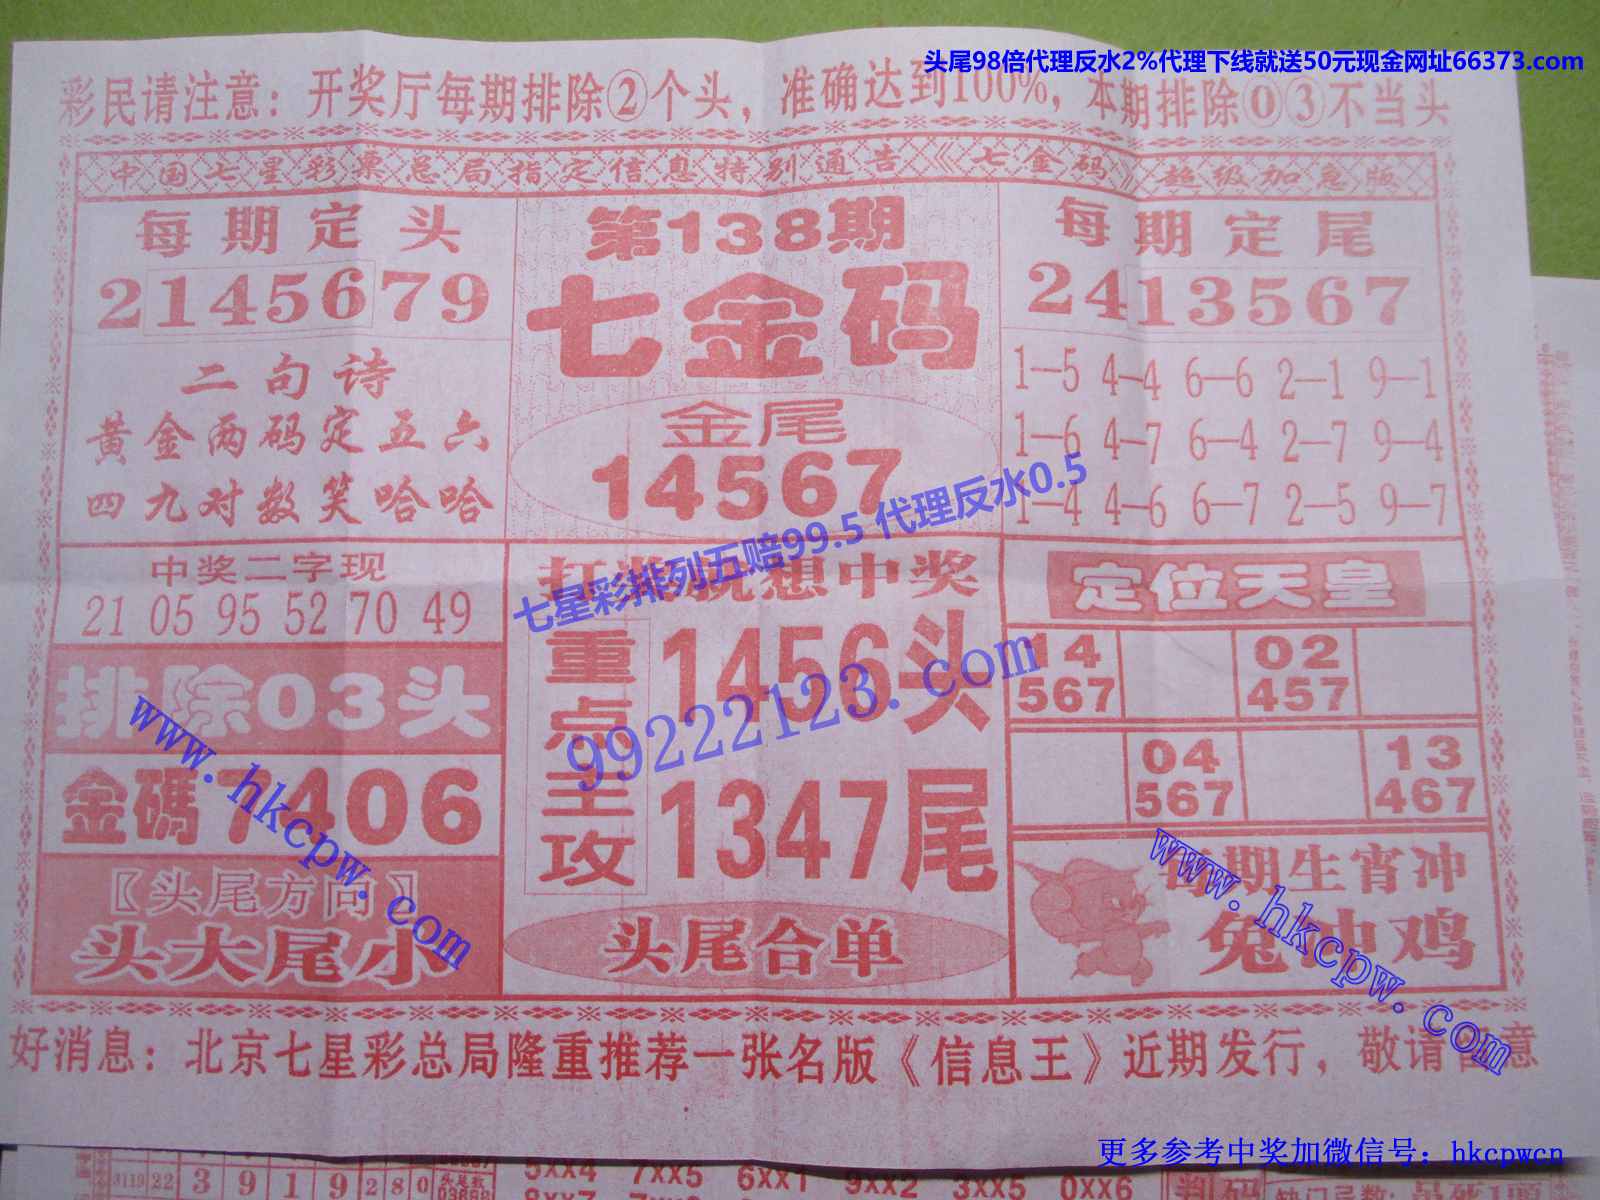 头尾98倍代理反水2%代理下线就送50元现金网址66373.com
彩民请注意：开奖厅每期排除②个头，准确达到100%，本期排除⓪③不当头
中国七星彩票总局指定信息特别通告《七金码》超级加急版
每期定头
2145679
二句诗
黄金两码定五六
四九对数笑哈哈
第138期
七金码
金尾
14567
每期定尾
2413567
1—5 4—4 6—6 2—1 9—1
1—6 4—7 6—4 2—7 9—4
1—4 4—6 6—7 2—5 9—7
七星彩排列五赔99.5 代理反水0.5
中奖二字现
21 05 95 52 70 49
排除03头
金碼7406
〖头尾方向〗
头大尾小
想中奖
重点主攻
1456头
1347尾
头尾合单
99222123.com
定位天皇
14 02
567 457
04 13
567 467
每期生宵冲
兔冲鸡
www.hkcpw.com
www.hkcpw.com
好消息：北京七星彩总局隆重推荐一张名版《信息王》近期发行，敬请留意
更多参考中奖加微信号：hkcpwcn
3119 22 3 9 1 9 2 8 0
5xx4 7xx5 6xx1 9xx2 3xx5 0xx6